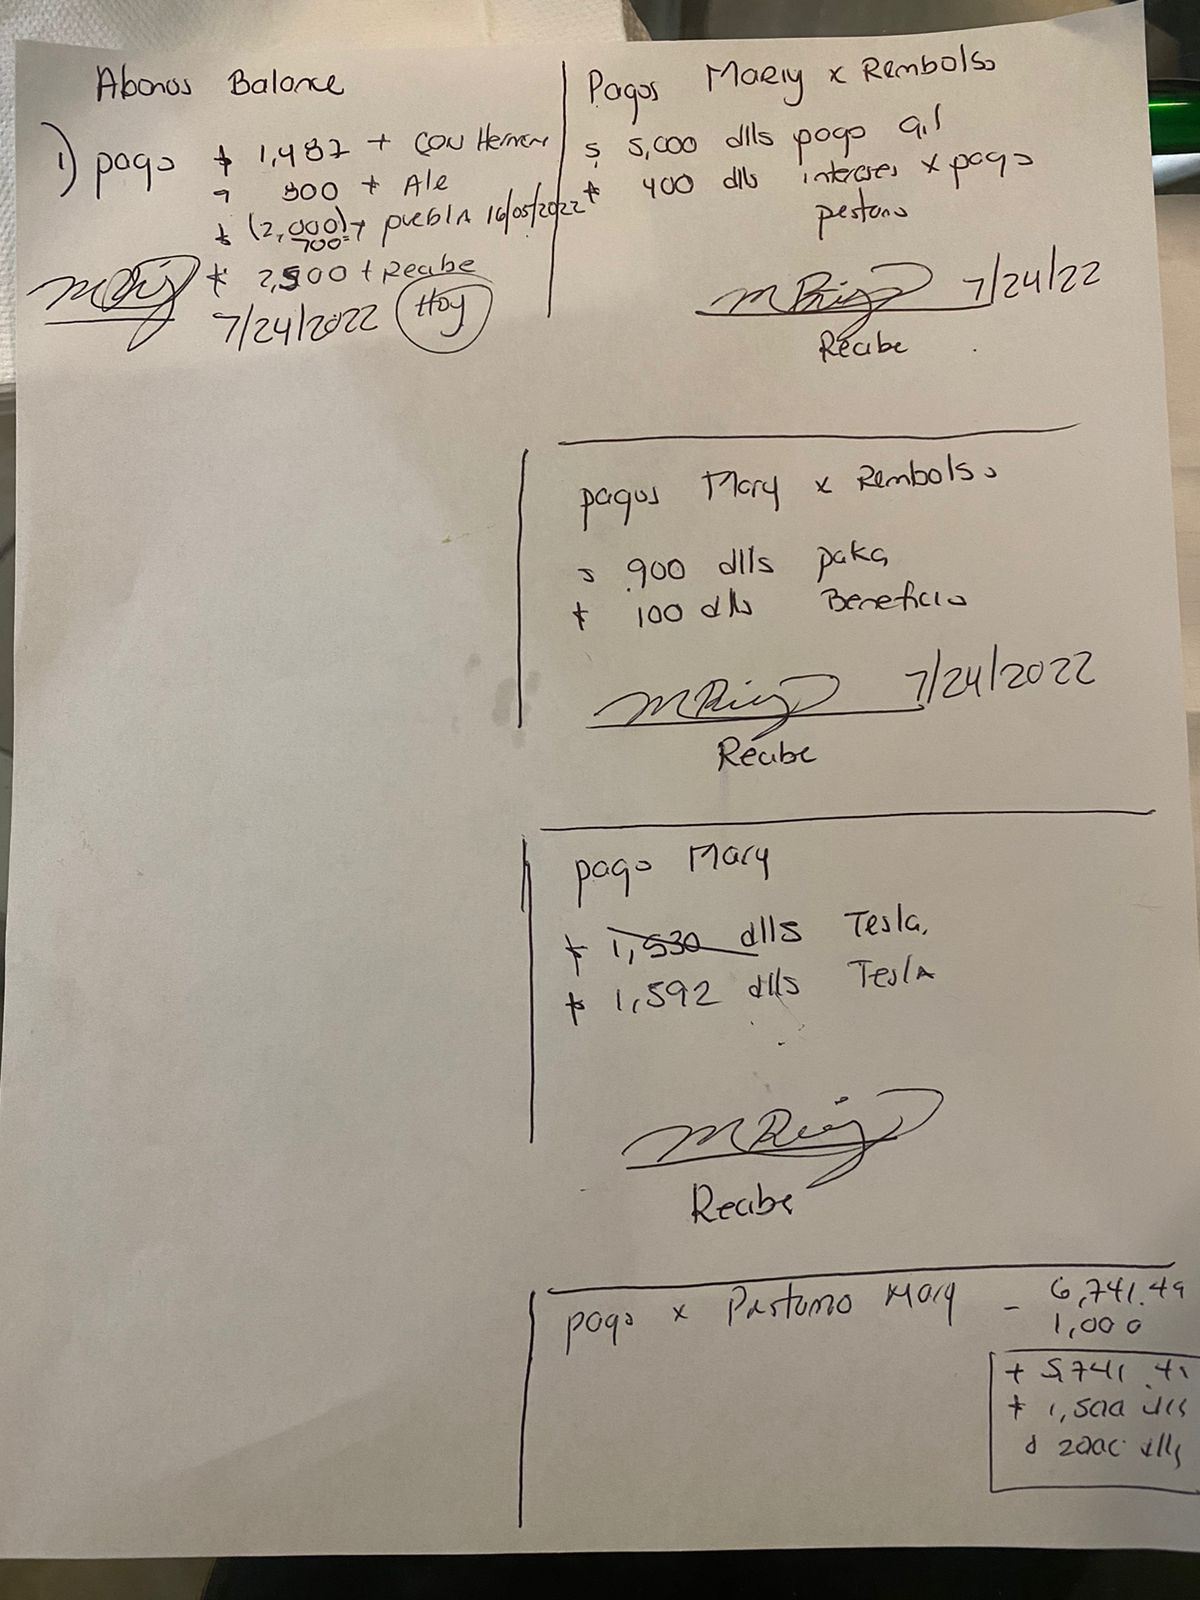 Abonos Balance
1) pago $ 1,487 + CON
+ Ale
$ (2,000) + puebla 16/05/2022
700=
$ 2,500 + Recibe
7/24/2022 Hoy
Pagos Mary x Rembolso
$ 5,000 dlls pago
$ 400 dlls intereses x pago
pestano
7/24/22
Recibe
pagos Mary x Rembolso
$ 900 dlls paka
$ 100 dlls Beneficio
7/24/2022
Recibe
pago Mary
$ 1,530 dlls Tesla.
$ 1,592 dlls Tesla
Recibe
pago x Prestamo Mary - 6,741.49
1,000
+ 5,741.4
+ 1,500 dlls
o 2000 dlls